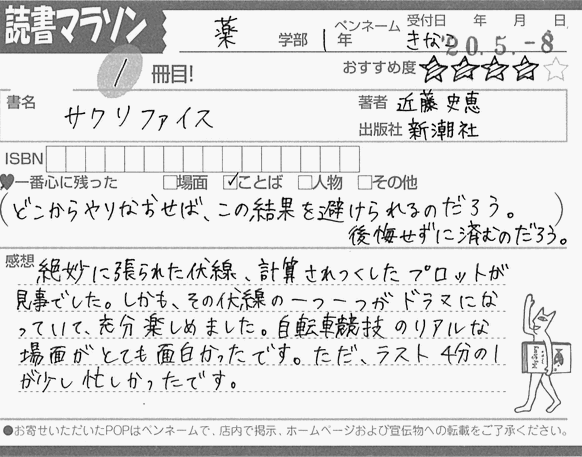 読書マラソン
薬 学部 1 年 ペンネーム きなこ 受付日 年 月 日
20.5.-8
1 冊目! おすすめ度 ★★★★☆
書名 サクリファイス 著者 近藤史恵
出版社 新潮社
ISBN
♥一番心に残った □場面 ☑ことば □人物 □その他
(どこからやりなおせば、この結果を避けられるのだろう。
後悔せずに済むのだろう。)
感想 絶妙に張られた伏線、計算されつくしたプロットが
見事でした。しかも、その伏線の一つ一つがドラマにな
っていて、充分楽しめました。自転車競技のリアルな
場面がとても面白かったです。ただ、ラスト4分の1
が少し忙しかったです。
●お寄せいただいたPOPはペンネームで、店内で掲示、ホームページおよび宣伝物への転載をご了承ください。